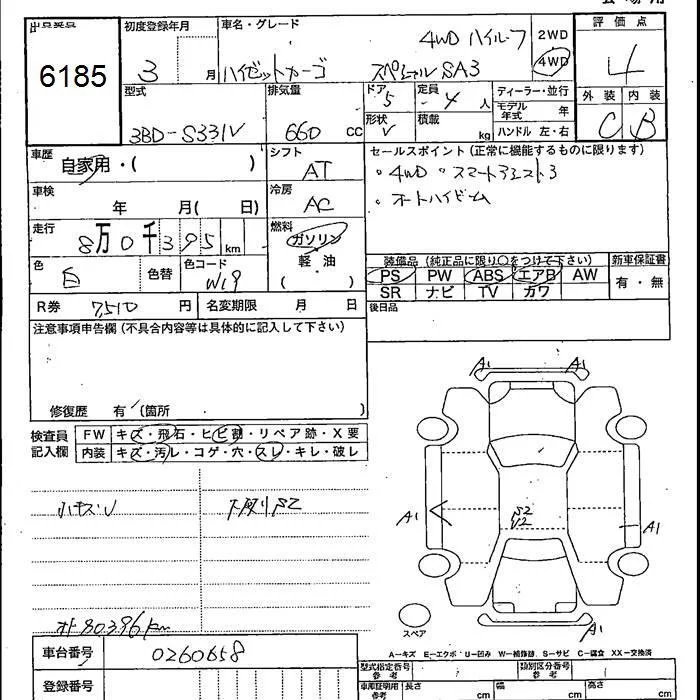 出品番号
6185
初度登録年月
3 月
車名・グレード
4WD ハイルーフ
ハイゼットカーゴ スペシャル SA3
2WD
4WD
評価点
4
外装 内装
C B
型式
3BD-S331V
排気量
660 cc
ドア 5
形状 V
定員 - 4 人
積載 kg
ディーラー・並行
モデル年式 年
ハンドル 左・右
車歴
自家用・( )
シフト
AT
セールスポイント (正常に機能するものに限ります)
・4WD ・スマートアシスト3
・オートハイビーム
車検
年 月( 日)
冷房
AC
走行
8万0千395 km
燃料
ガソリン
軽・油
( )
色
白
色替
色コード
W19
装備品 (純正品に限り○をつけて下さい)
新車保証書
PS PW ABS エアB AW
有・無
SR ナビ TV カワ
R券 7,510 円
名変期限 月 日
後日品
注意事項申告欄 (不具合内容等は具体的に記入して下さい)
修復歴 有 (箇所 )
検査員記入欄
FW キズ・飛石・ヒビ割・リペア跡・X要
内装 キズ・汚レ・コゲ・穴・スレ・キレ・破レ
A1 A1
小キズU
下廻りS2
A1
S2
A1
スペア
A1
オド 80396 km
A-キズ E-エクボ U-凹み W-補修跡 S-サビ C-腐食 XX-交換済
車台番号 0260658
型式指定番号 参考
類別区分番号 参考
登録番号
車庫証明用 参考
長さ cm 幅 cm 高さ cm